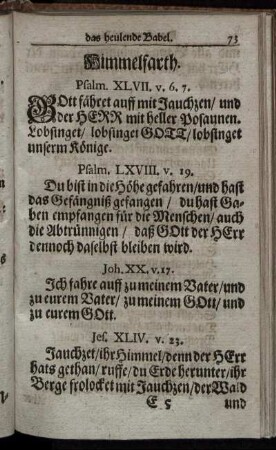 das heulende Babel. 73
Himmelfarth.
Psalm. XLVII. v. 6. 7.
GOtt fähret auff mit Jauchzen/ und
der HERR mit heller Posaunen.
Lobsinget/ lobsinget GOTT/ lobsinget
unserm Könige.
Psalm. LXVIII. v. 19.
Du bist in die Höhe gefahren/und hast
das Gefängniß gefangen/ du hast Ga-
ben empfangen für die Menschen/ auch
die Abtrünnigen/ daß GOtt der HErr
dennoch daselbst bleiben wird.
Joh. XX. v. 17.
Ich fahre auff zu meinem Vater/und
zu eurem Vater/ zu meinem GOtt/ und
zu eurem GOtt.
Jes. XLIV. v. 23.
Jauchzet/ ihr Himmel/ denn der HErr
hats gethan/ ruffe/ du Erde herunter/ ihr
Berge frolocket mit Jauchzen/ der Wald
E 5 und